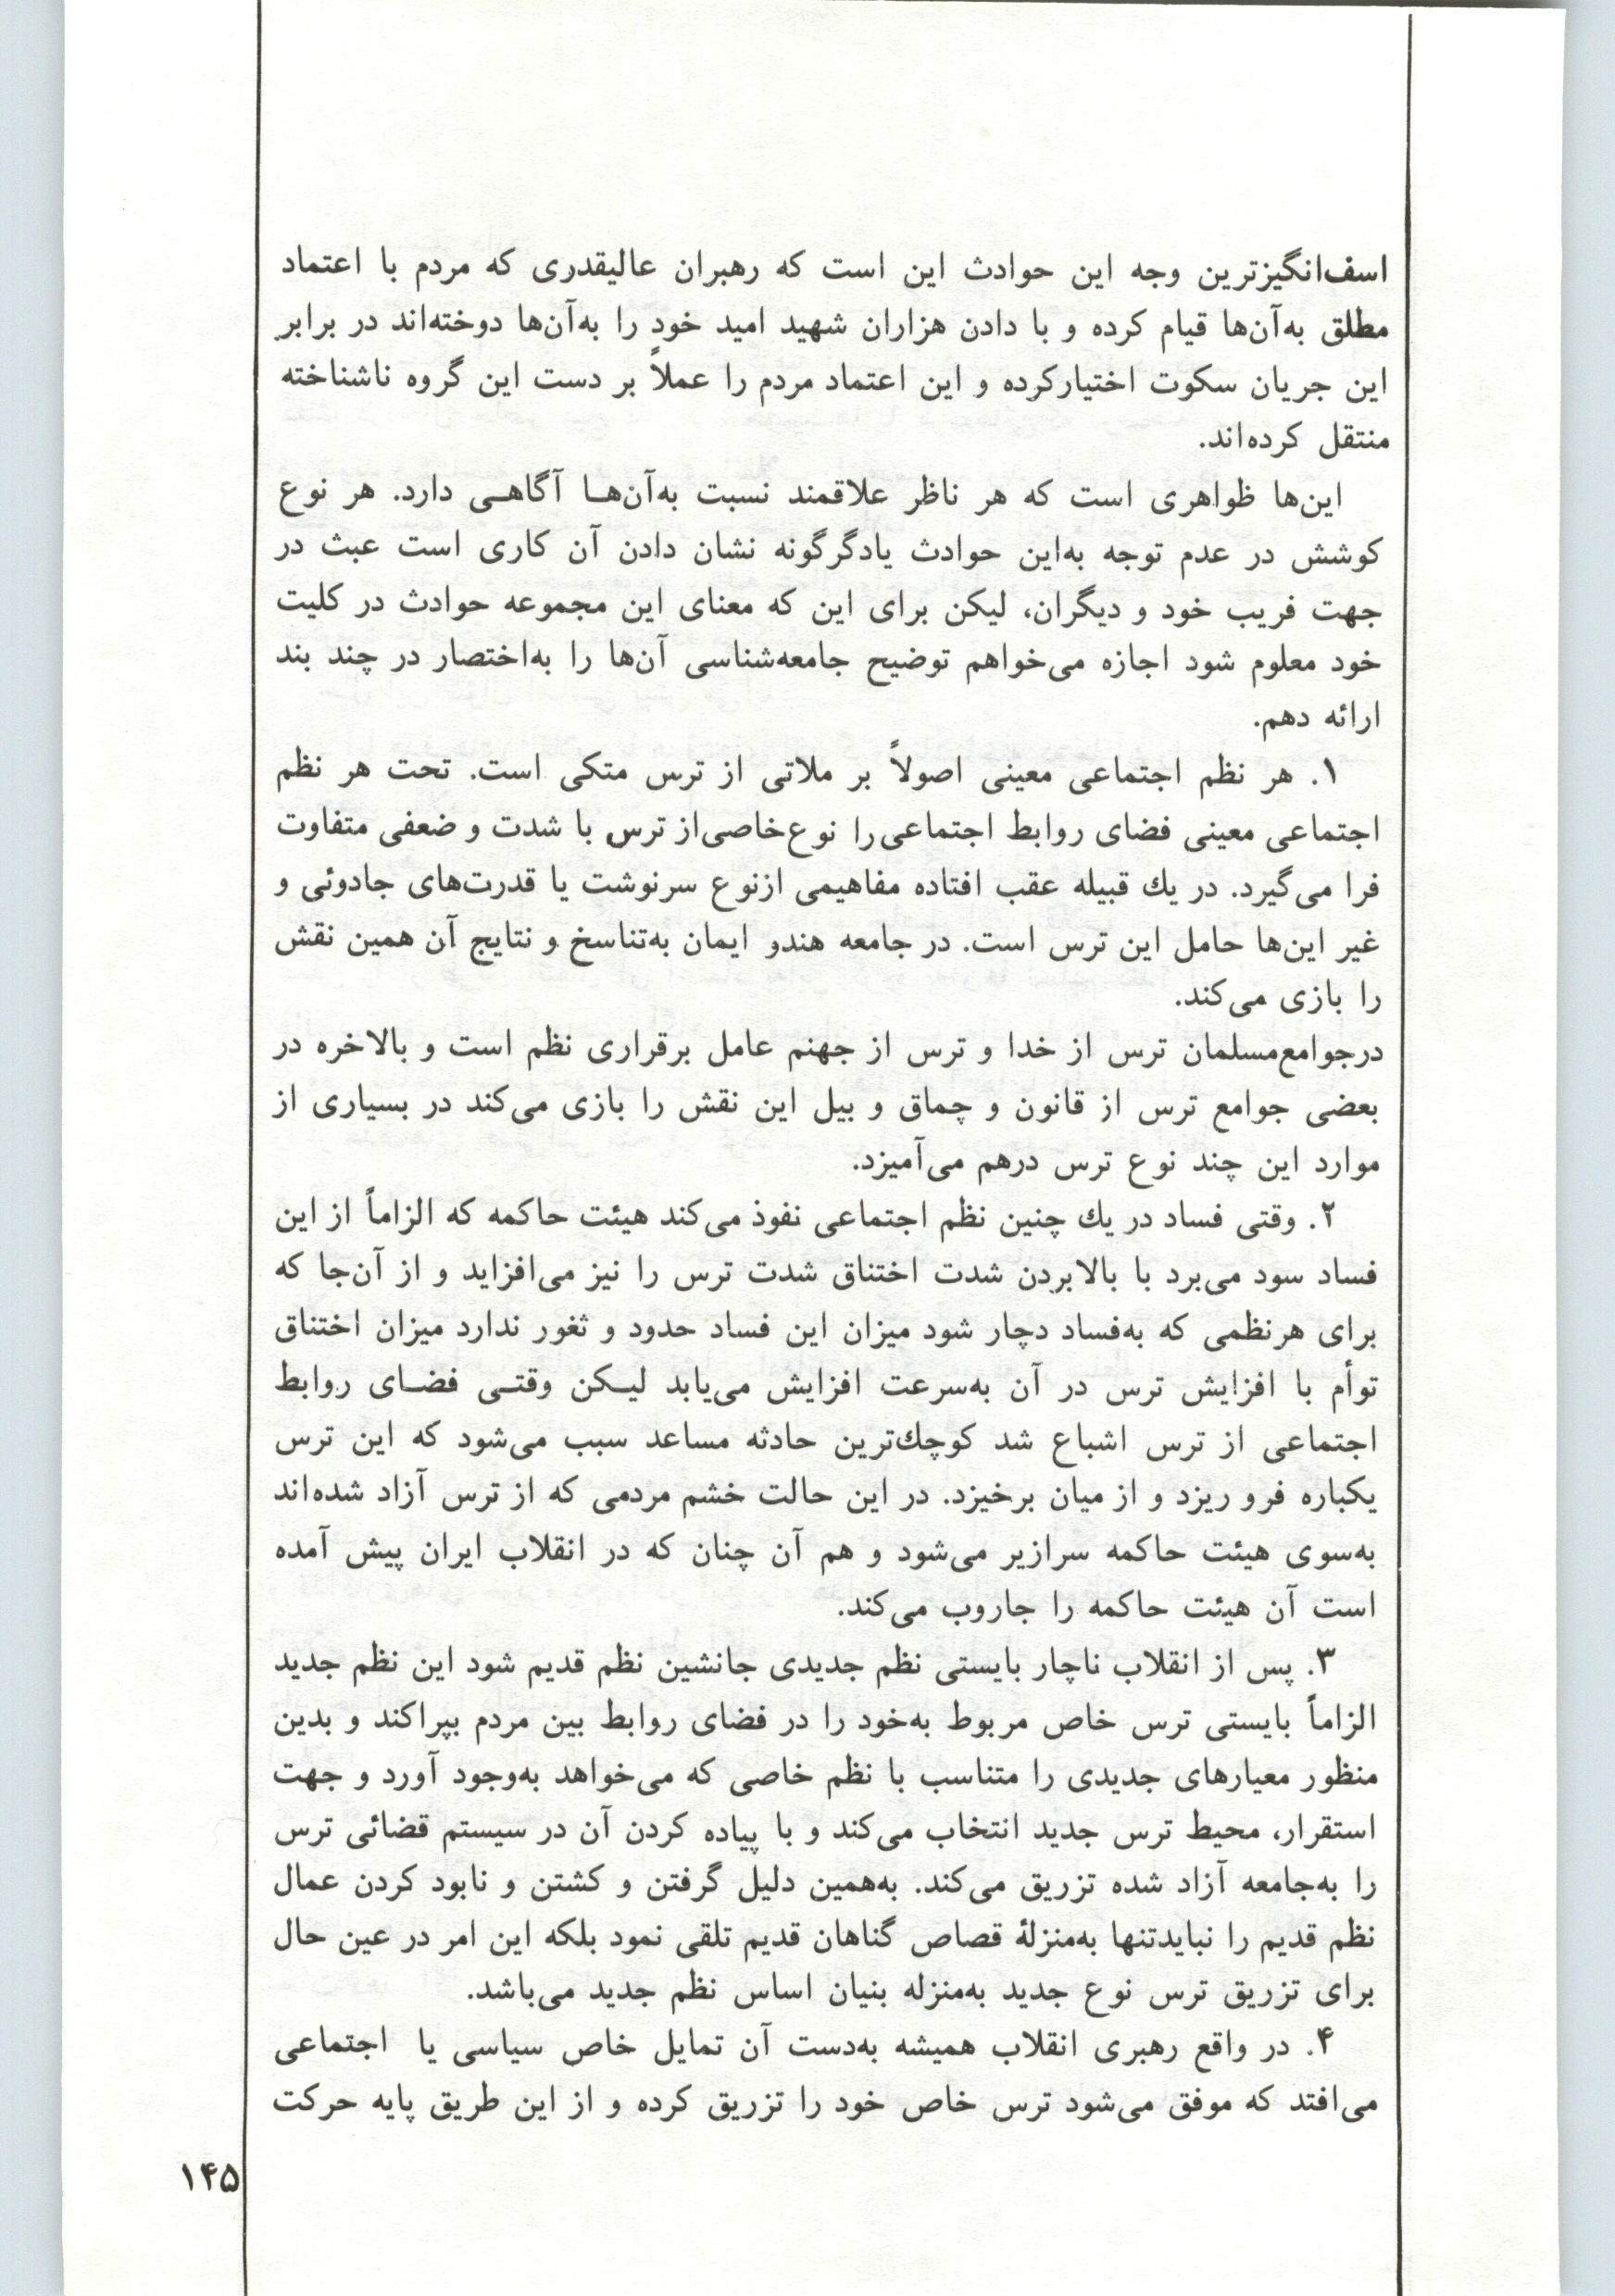 اسف‌انگیزترین وجه این حوادث این است که رهبران عالیقدری که مردم با اعتماد
مطلق به‌آن‌ها قیام کرده و با دادن هزاران شهید امید خود را به‌آن‌ها دوخته‌اند در برابر
این جریان سکوت اختیارکرده و این اعتماد مردم را عملاً بر دست این گروه ناشناخته
منتقل کرده‌اند.
این‌ها ظواهری است که هر ناظر علاقمند نسبت به‌آن‌هـا آگاهـی دارد. هر نوع
کوشش در عدم توجه به‌این حوادث یادگرگونه نشان دادن آن کاری است عبث در
جهت فریب خود و دیگران، لیکن برای این که معنای این مجموعه حوادث در کلیت
خود معلوم شود اجازه می‌خواهم توضیح جامعه‌شناسی آن‌ها را به‌اختصار در چند بند
ارائه دهم.
۱. هر نظم اجتماعی معینی اصولاً بر ملاتی از ترس متکی است. تحت هر نظم
اجتماعی معینی فضای روابط اجتماعی‌را نوع‌خاصی‌از ترس با شدت و ضعفی متفاوت
فرا می‌گیرد. در یك قبیله عقب افتاده مفاهیمی ازنوع سرنوشت یا قدرت‌های جادوئی و
غیر این‌ها حامل این ترس است. در جامعه هندو ایمان به‌تناسخ و نتایج آن همین نقش
را بازی می‌کند.
درجوامع‌مسلمان ترس از خدا و ترس از جهنم عامل برقراری نظم است و بالاخره در
بعضی جوامع ترس از قانون و چماق و بیل این نقش را بازی می‌کند در بسیاری از
موارد این چند نوع ترس درهم می‌آمیزد.
۲. وقتی فساد در یك چنین نظم اجتماعی نفوذ می‌کند هیئت حاکمه که الزاماً از این
فساد سود می‌برد با بالابردن شدت اختناق شدت ترس را نیز می‌افزاید و از آن‌جا که
برای هرنظمی که به‌فساد دچار شود میزان این فساد حدود و ثغور ندارد میزان اختناق
توأم با افزایش ترس در آن به‌سرعت افزایش می‌یابد لیـکن وقتـی فضـای روابط
اجتماعی از ترس اشباع شد کوچك‌ترین حادثه مساعد سبب می‌شود که این ترس
یکباره فرو ریزد و از میان برخیزد. در این حالت خشم مردمی که از ترس آزاد شده‌اند
به‌سوی هیئت حاکمه سرازیر می‌شود و هم آن چنان که در انقلاب ایران پیش آمده
است آن هیئت حاکمه را جاروب می‌کند.
۳. پس از انقلاب ناچار بایستی نظم جدیدی جانشین نظم قدیم شود این نظم جدید
الزاماً بایستی ترس خاص مربوط به‌خود را در فضای روابط بین مردم بپراکند و بدین
منظور معیارهای جدیدی را متناسب با نظم خاصی که می‌خواهد به‌وجود آورد و جهت
استقرار، محیط ترس جدید انتخاب می‌کند و با پیاده کردن آن در سیستم قضائی ترس
را به‌جامعه آزاد شده تزریق می‌کند. به‌همین دلیل گرفتن و کشتن و نابود کردن عمال
نظم قدیم را نبایدتنها به‌منزلهٔ قصاص گناهان قدیم تلقی نمود بلکه این امر در عین حال
برای تزریق ترس نوع جدید به‌منزله بنیان اساس نظم جدید می‌باشد.
۴. در واقع رهبری انقلاب همیشه به‌دست آن تمایل خاص سیاسی یا اجتماعی
می‌افتد که موفق می‌شود ترس خاص خود را تزریق کرده و از این طریق پایه حرکت
۱۴۵